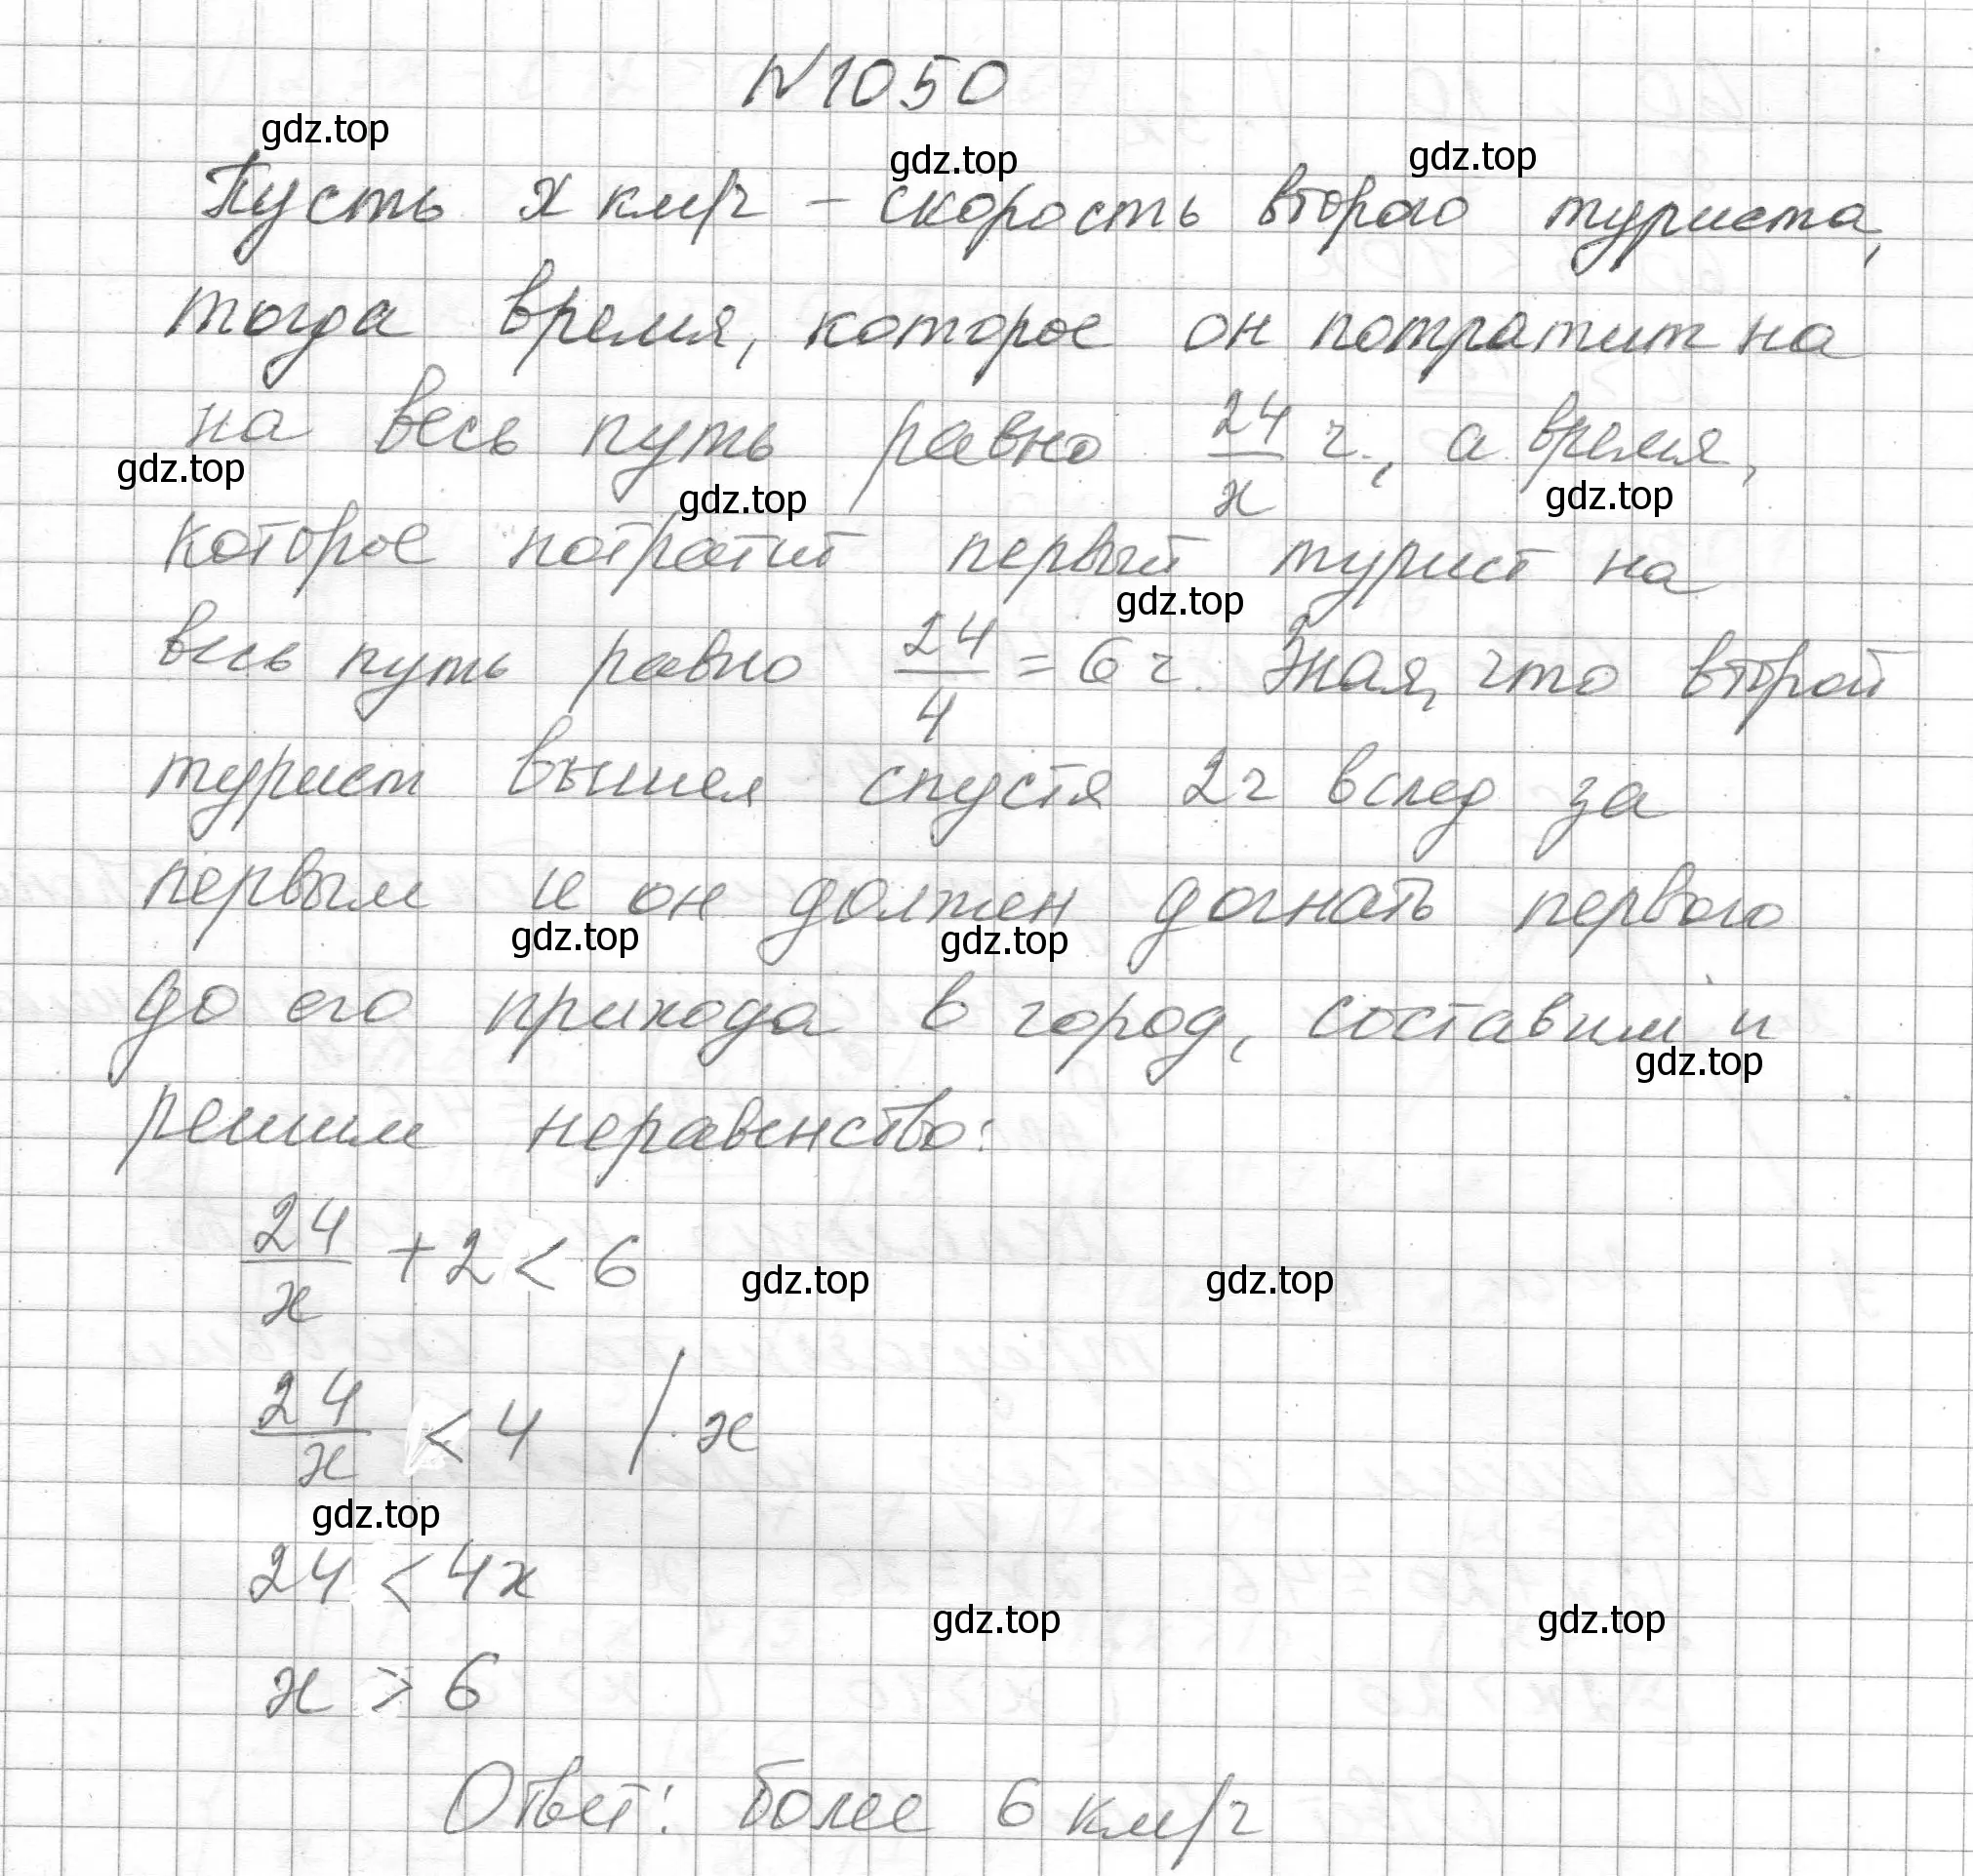 №1050
gdz.top
gdz.top
gdz.top
Пусть x км/ч – скорость второго туриста,
тогда время, которое он потратит на
на весь путь равно 24/x ч., а время,
gdz.top
gdz.top
gdz.top
которое потратит первый турист на
gdz.top
весь путь равно 24/4 = 6 ч. Зная, что второй
турист вышел спустя 2 ч вслед за
первым и он должен догнать первого
gdz.top
gdz.top
до его прихода в город, составим и
gdz.top
решим неравенство:
24/x + 2 < 6
gdz.top
gdz.top
24/x < 4 | · x
gdz.top
24 < 4x
gdz.top
gdz.top
x > 6
Ответ: более 6 км/ч